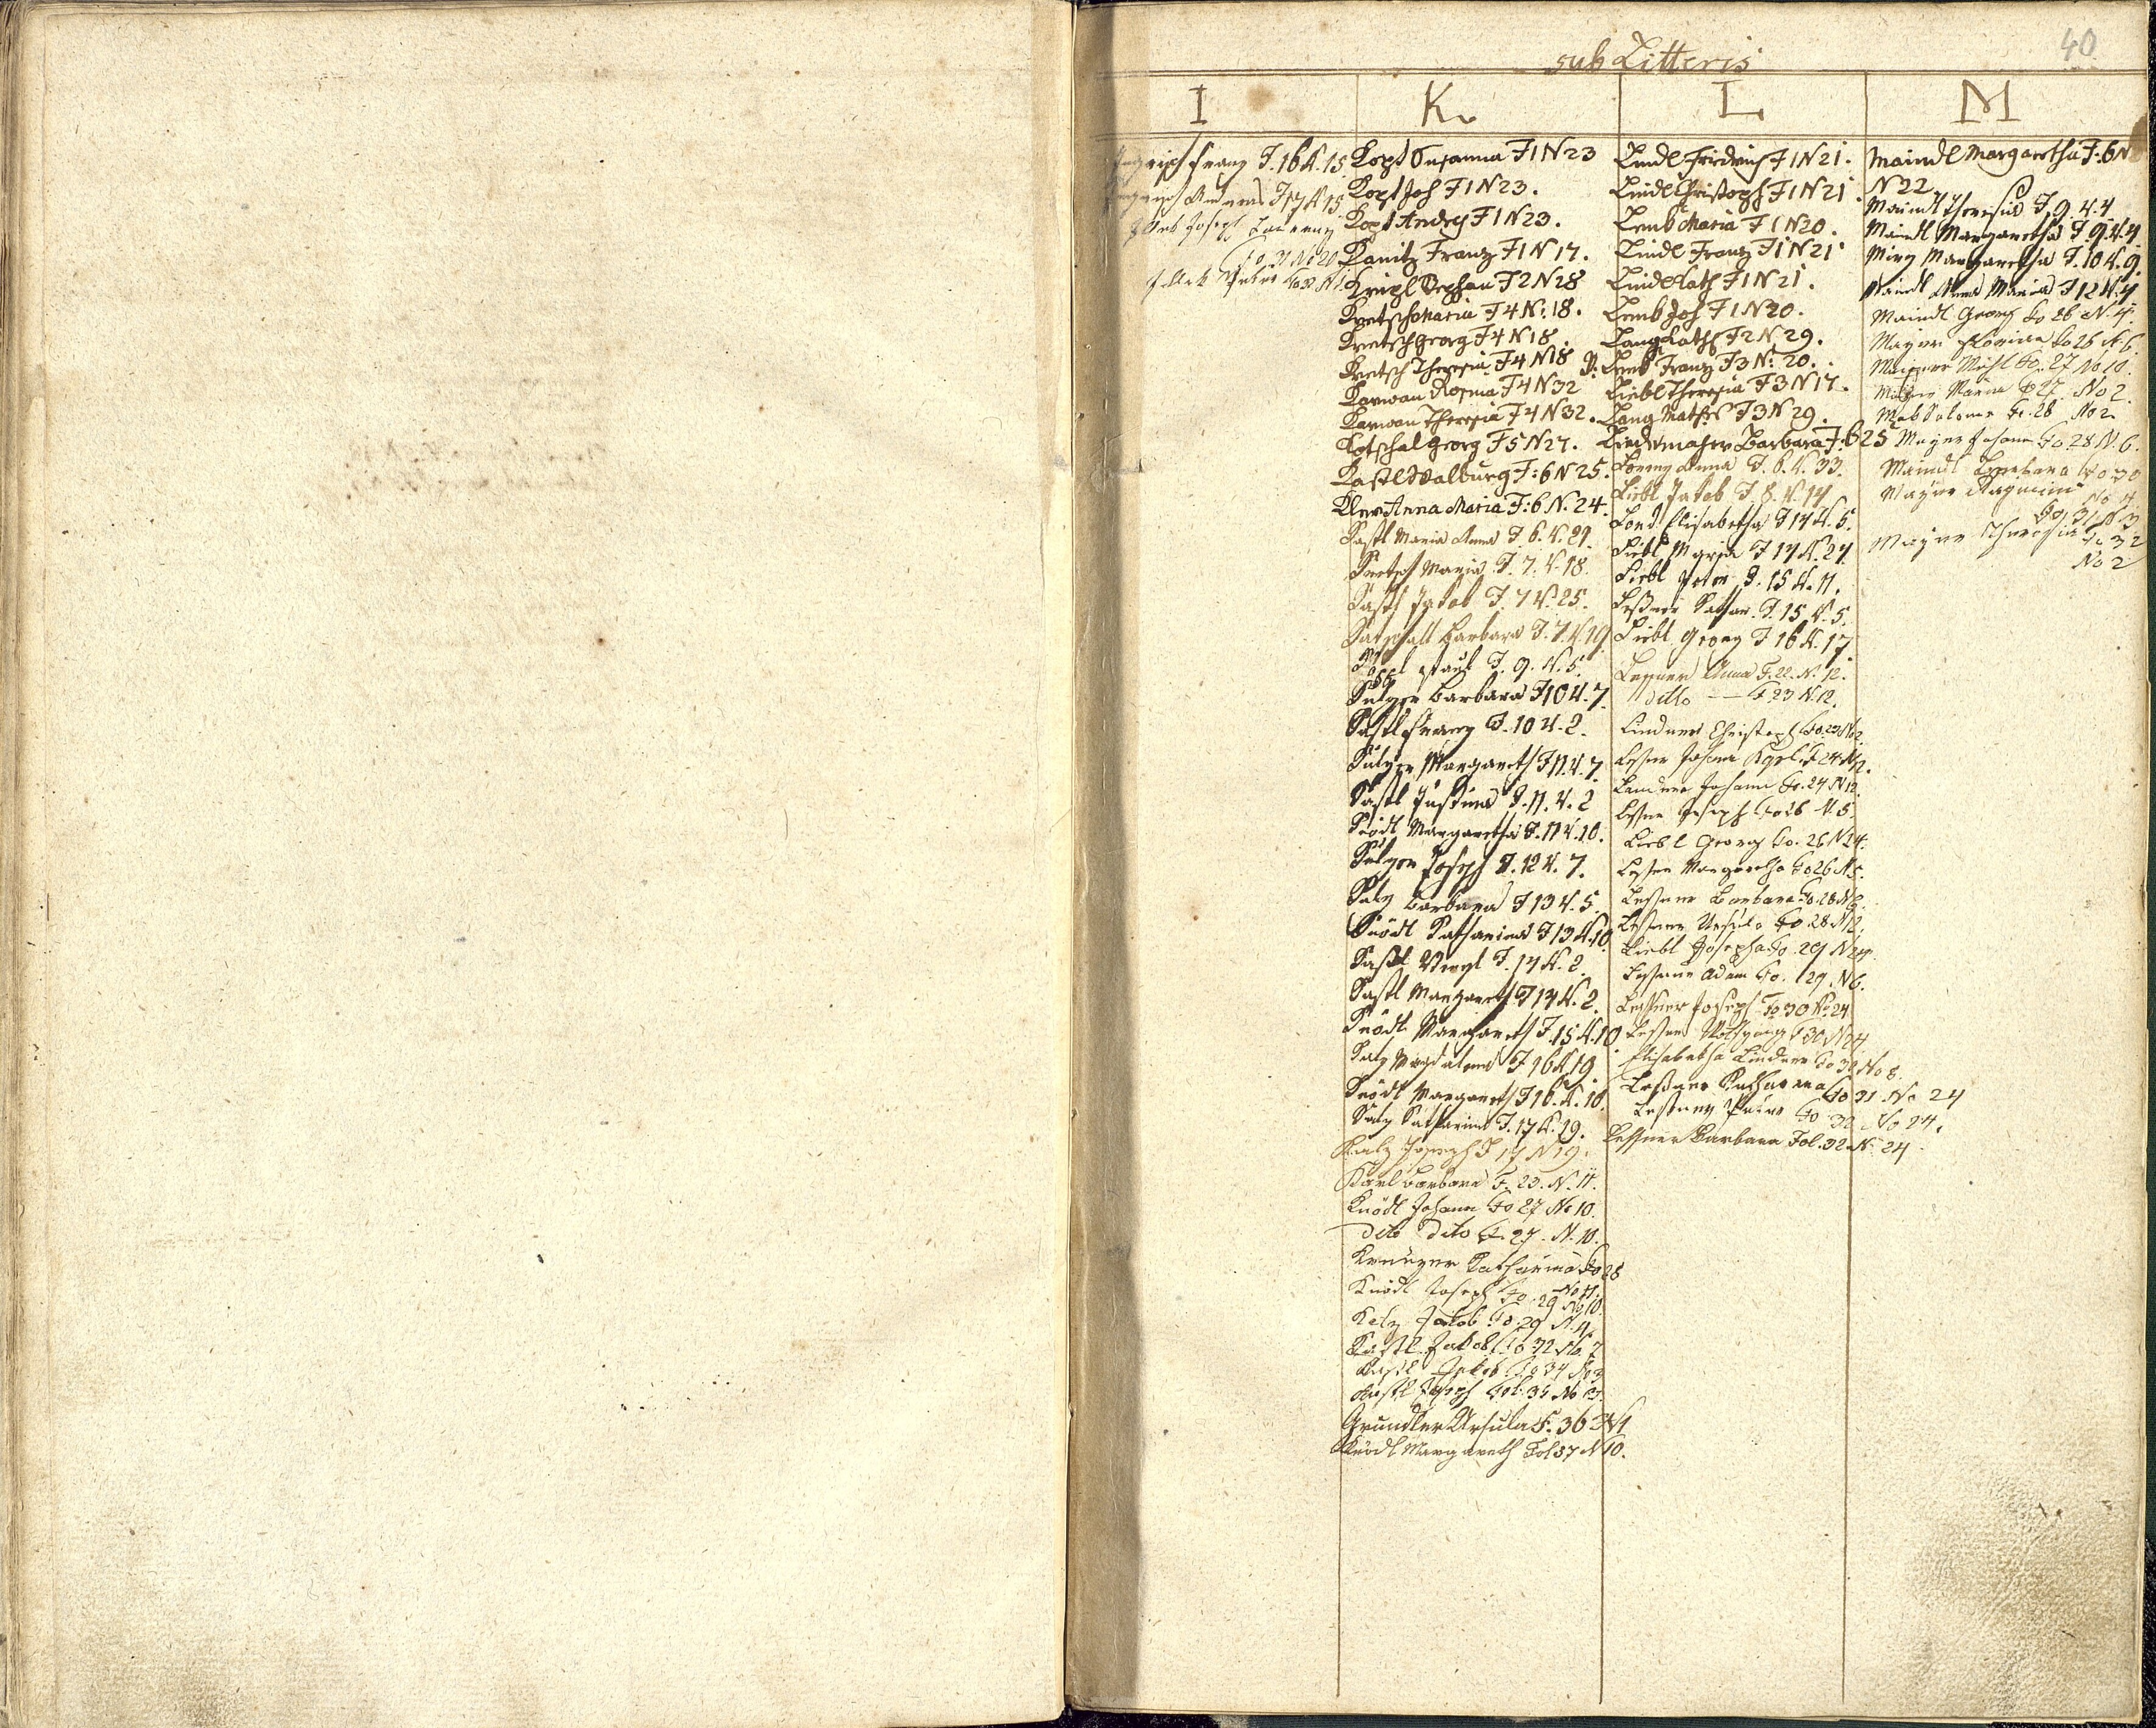 40
sub Litteris
I
Franz F. 16 N. 15
F 17 N 15
Joseph
Fo 31 No 20
K.
Kopf Susanna F 1 N 23
Kopf Joh F 1 N 23.
Kopf Andres F 1 N 23.
Kanitz Franz F 1 N 17.
Stephan F 2 N 28
Kretsch Maria F 4 N: 18.
Kretsch Georg F 4 N 18
Kretsch Theresia F 4 N 18
Karwan Rosina F 4 N 32
Karwan Theresia F 4 N 32.
Kotschal Georg F 5 N 27.
Kastl Walburg F: 6 N 25.
Anna Maria F: 6 N. 24.
Kastl Maria Anna F. 6. N. 21.
Kretsch Maria F. 7. N. 18.
Kastl Jakob F. 7 N. 25.
Barbara F. 7. N 19
Paul F. 9. N. 5.
Barbara F 10 N. 7.
Kastl Franz F. 10 N. 2.
Margareth F 11. N. 7.
Kastl Justina F. 11. N. 2
Knödl Margaretha F. 11 N. 10.
Joseph F. 12 N. 7.
Katz Barbara F 13 N. 5.
Knödl Katharina F 13 N. 10
Kastl F. 14 N. 2.
Kastl Margareth F 14 N. 2.
Knödl Margareth F. 15 N. 10.
Katz Magdalena F 16 N 19.
Knödl Margareth F 16. N. 10.
Katz Katharina F. 17 N. 19.
Katz Joseph F 17 N 19.
Karl Barbara F. 23. N. 11.
Knödl Johann Fo 27 No 10.
Dito Dito F. 27. N. 10.
Katharina Fo 28
No 11.
Knödl Joseph Fo. 29 No 10.
Jakob Fo 29 N. 4.
Kastl Jakob Fo 32 No. 2
Kastl Jakob Fo 34 No 3
Kastl Joseph Fol. 35 No 13
Grundler Ursula F. 36 N 1
Knödl Margareth Fol 37 N 10.
L
Lindl Friedrich F 1 N 21.
Lindl Christoph F 1 N 21.
Lemb Maria F 1 N 20.
Lindl Franz F 1 N 21
Lindl Kath F 1 N 21.
Lemb Joh F 1 N 20.
Lang Kath F 2 N 29.
Lemb Franz F 3 N: 20.
Liebl Theresia F 3 N 17.
Lang Mathes F 3 N 29.
Lindermayer Barbara F: 6 25
Lorenz Anna F. 6. N. 33.
Liebl Jakob F. 8. N. 14
Elisabetha F 14 N. 6.
Liebl Maria F 14 N. 24.
Liebl Peter F. 15 N. 11.
Leßner Kathar. F. 15 N. 5.
Liebl Georg F 16 N. 17.
Lessner Anna F. 22. N. 12.
Dito — F. 23 N. 12.
Lindner Christoph Fo. 23 N 2.
Leßner Johann F. 24 N 12.
Lindner Johann Fo. 24 N 12.
Leßner Joseph Fo 26 N. 5.
Liebl Georg Fo. 26 N 24.
Leßner Margaretha Fo 26 N 5.
Lessner Barbara Fo. 28 N 6.
Lessner Ursula Fo. 28 N 12.
Liebl Josepha Fo. 29 N 24.
Lessner Adam Fo. 29. N 6.
Lessner Joseph Fo 30 No 24
Lessner Wolfgang F 30 N 24
Elisabetha Lindner Fo 30 No 8.
Leßner Katharina Fo 31 No 24
Lessner Peter Fo 32 No 24.
Lessner Barbara Fol. 32 N. 24
M
Maindl Margaretha F: 6 N
N 22
Maindl Theresia F. 9. N. 4
Maindl Margaretha F. 9. N. 4.
Margaretha F. 10 N. 9.
Maindl Anna Maria F 12 N. 4
Maindl Georg Fo 26 N. 4.
Mayer Florian Fo 26 N. 6.
Fo. 27 No 10.
Maria Fo 27. No 2.
Salome Fo. 28 No 2
Mayer Johann Fo. 28 N. 6.
Maindl Barbara Fo 30
No 4
Mayer
Fo 31 N. 3
Mayer Theresia Fo 32
No 2